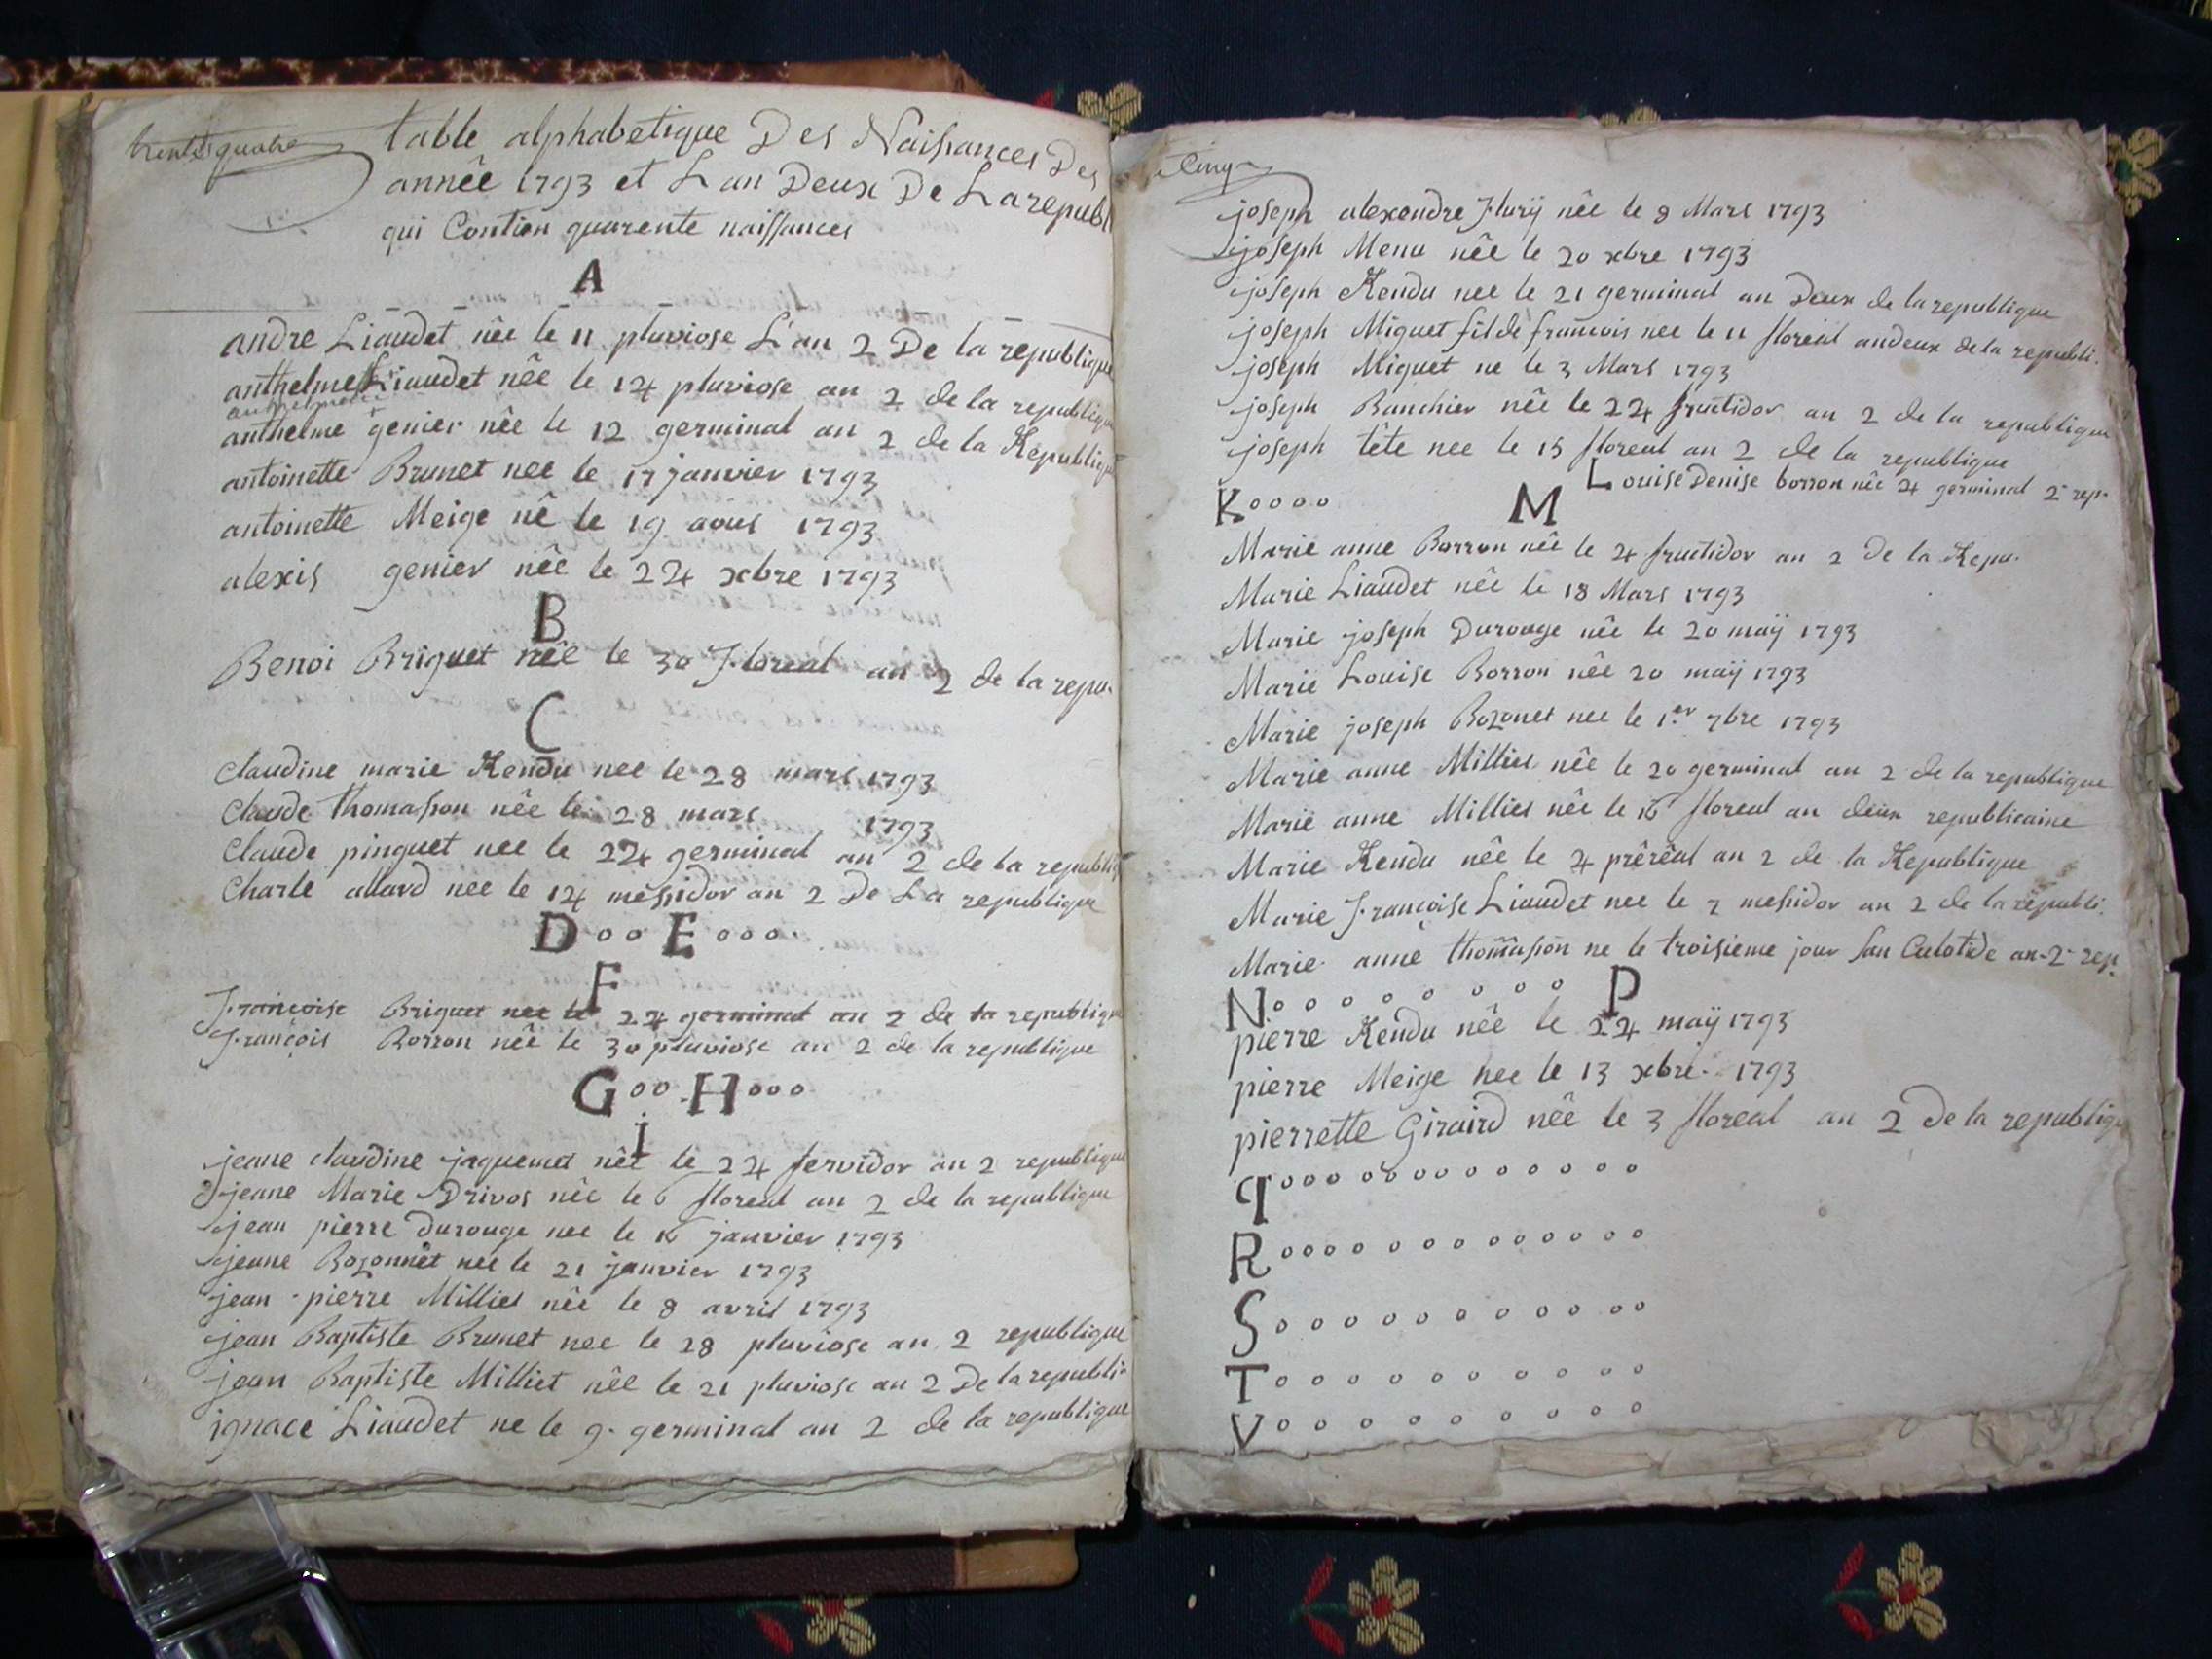 trente quatre
table alphabetique Des Naissances Des
annêe 1793 et L'an Deux De La republ
qui Contien quarente naissances
A
andre Liaudet nêe le 11 pluviose L'an 2 De la republique
anthelme Liaudet nêe le 14 pluviose an 2 de la republique
anthelme genier nêe le 12 germinal an 2 de la Republique
antoinette Brunet nee le 17 janvier 1793
antoinette Meige nê le 19 aous 1793
alexis genier nêe le 24 xbre 1793
B
Benoi Briguet nêe le 30 Floreal an 2 de la repu.
C
Claudine marie Rendu nee le 28 mars 1793
Claude thomasson nêe le 28 mars 1793
Claude pinguet nee le 24 germinal an 2 de la republiq
Charle allard nee le 14 messidor an 2 De La republique
D oo E ooo
F
Françoise Briguet nee le 24 germinal an 2 de la republique
François Borron nêe le 30 pluviose an 2 de la republique
G oo H ooo
i
jeane claudine jaquemet nêe le 24 fervidor an 2 republique
jeane Marie Drivos nêe le 6 floreal an 2 de la republique
jean pierre Durouge nee le 16 janvier 1793
jeane Bozonnet nee le 21 janvier 1793
jean pierre Milliet nêe le 8 avril 1793
jean Baptiste Brunet nee le 28 pluviose an 2 republique
jean Baptiste Milliet nêe le 21 pluviose an 2 De la republi
ignace Liaudet ne le 9 germinal an 2 de la republique
Cinq
joseph alexendre Flurÿ nêe le 8 Mars 1793
joseph Menu nêe le 20 xbre 1793
joseph Rendu nee le 21 germinal an Deux de la republique
joseph Miguet fil de francois nee le 11 floreal an deux de la republi.
joseph Miguet ne le 3 Mars 1793
joseph Banchier nêe le 24 fructidor an 2 de la republique
joseph tête nee le 15 floreal an 2 de la republique
Louise Denise borron nêe 4 germinal 2 rep.
K oooo M
Marie anne Borron nêe le 4 fructidor an 2 de la Repu.
Marie Liaudet nêe le 18 Mars 1793
Marie joseph Durouge nêe le 20 maÿ 1793
Marie Louise Borron nêe 20 maÿ 1793
Marie joseph Bozonet nee le 1.er 7bre 1793
Marie anne Milliet nêe le 20 germinal an 2 de la republique
Marie anne Milliet nêe le 16 floreal an deux republicaine
Marie Rendu nêe le 4 prêrêal an 2 de la Republique
Marie Françoise Liaudet nee le 2 messidor an 2 de la republi.
Marie anne thomasson ne le troisieme jour San Culotide an 2 rep.
N ooooooooo P
pierre Rendu nêe le 24 maÿ 1793
pierre Meige nee le 13 xbre 1793
pierrette Giraird nêe le 3 floreal an 2 De la republiq
q ooooooooooooo
R oooooooooooooo
S ooooooooooooo
T ooooooooooo
V oooooooooo